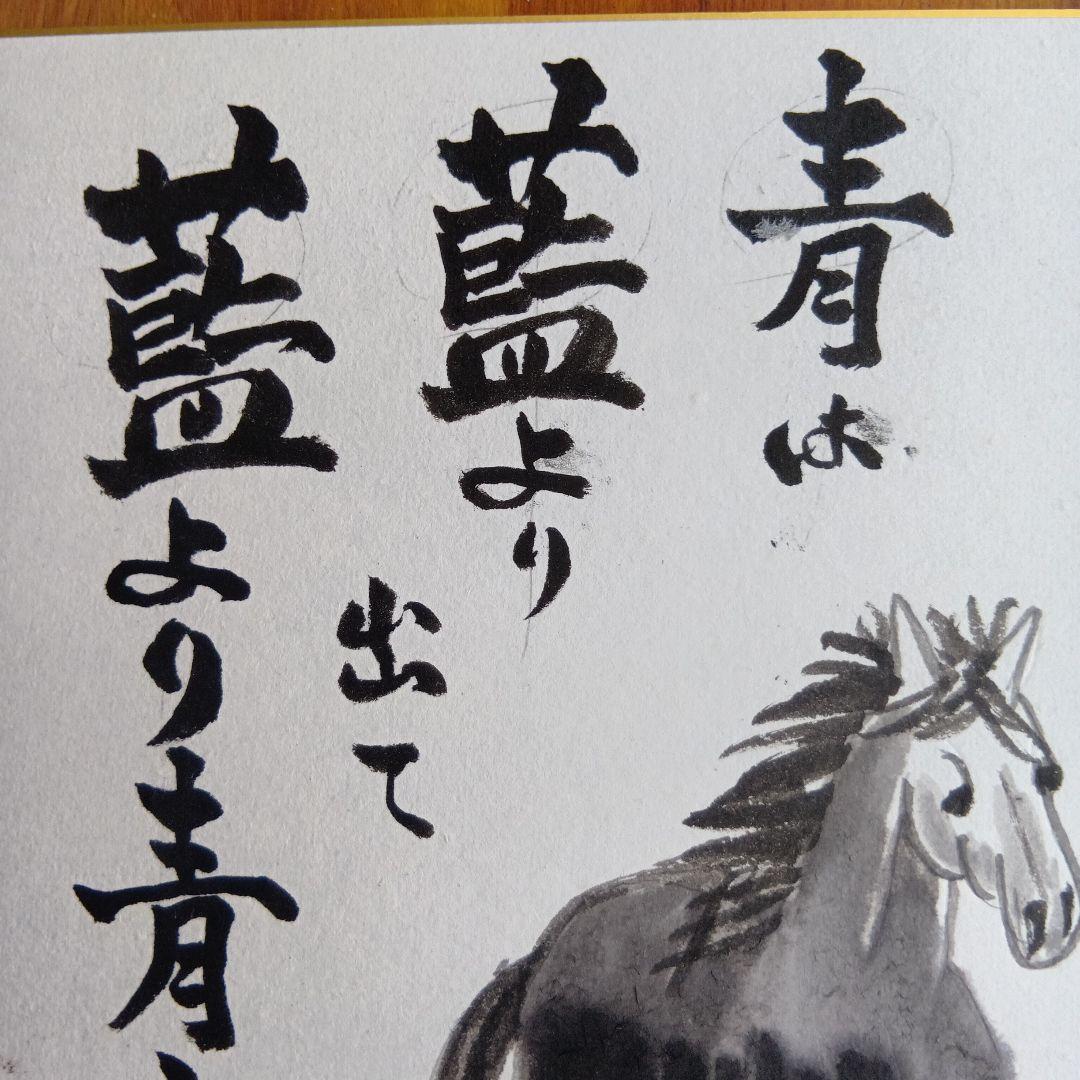 青は
藍より
出て
藍より青